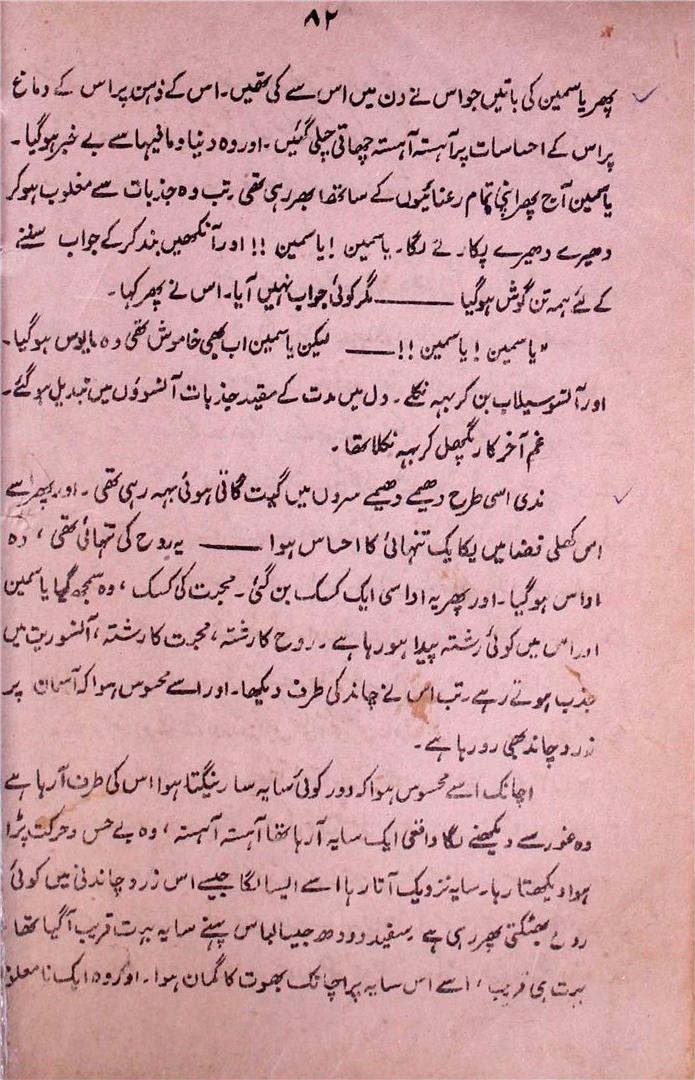 ۸۲
پھر یاسمین کی باتیں جو اس نے دن میں اس سے کی تھیں۔ اس کے ذہن پر اس کے دماغ
پر اس کے احساسات پر آہستہ آہستہ چھاتی چلی گئیں۔ اور وہ دنیا و مافیہا سے بے خبر ہوگیا۔
یاسمین آج پھر اپنی تمام رعنائیوں کے ساتھ ابھر رہی تھی۔ تب وہ جذبات سے مغلوب ہوکر
دھیرے دھیرے پکارنے لگا۔ یاسمین! یاسمین!! اور آنکھیں بند کرکے جواب سننے
کے لئے ہمہ تن گوش ہوگیا ——— مگر کوئی جواب نہیں آیا۔ اس نے پھر کہا۔
"یاسمین! یاسمین!! —— لیکن یاسمین اب بھی خاموش تھی وہ مایوس ہوگیا۔
اور آنسو سیلاب بن کر بہہ نکلے۔ دل میں مدت کے مقید جذبات آنسوؤں میں تبدیل ہوگئے۔
غم آخر کار پگھل کر بہہ نکلا تھا۔
ندی اسی طرح دھیمے دھیمے سروں میں گیت گاتی ہوئی بہہ رہی تھی۔ اور پھر اسے
اس کھلی فضا میں یکایک تنہائی کا احساس ہوا ——— یہ روح کی تنہائی تھی، وہ
اداس ہوگیا۔ اور پھر یہ اداسی ایک کسک بن گئی۔ محبت کی کسک، وہ سمجھ گیا یاسمین
اور اس میں کوئی رشتہ پیدا ہو رہا ہے۔ روح کا رشتہ، محبت کا رشتہ، آنسو ریت میں
جذب ہوتے رہے۔ تب اس نے چاند کی طرف دیکھا۔ اور اسے محسوس ہوا کہ آسمان پر
زرد چاند بھی رو رہا ہے۔
اچانک اسے محسوس ہوا کہ دور کوئی سایہ سا رینگتا ہوا اس کی طرف آ رہا ہے
وہ غور سے دیکھنے لگا واقعی ایک سایہ آ رہا تھا آہستہ آہستہ، وہ بے حس و حرکت پڑا
ہوا دیکھتا رہا۔ سایہ نزدیک آتا رہا اسے ایسا لگا جیسے اس زرد چاندنی میں کوئی
روح بھٹکتی پھر رہی ہے سفید دودھ جیسا لباس پہنے سایہ بہت قریب آگیا تھا
بہت ہی قریب، اسے اس سایہ پر اچانک بھوت کا گمان ہوا۔ اور وہ ایک